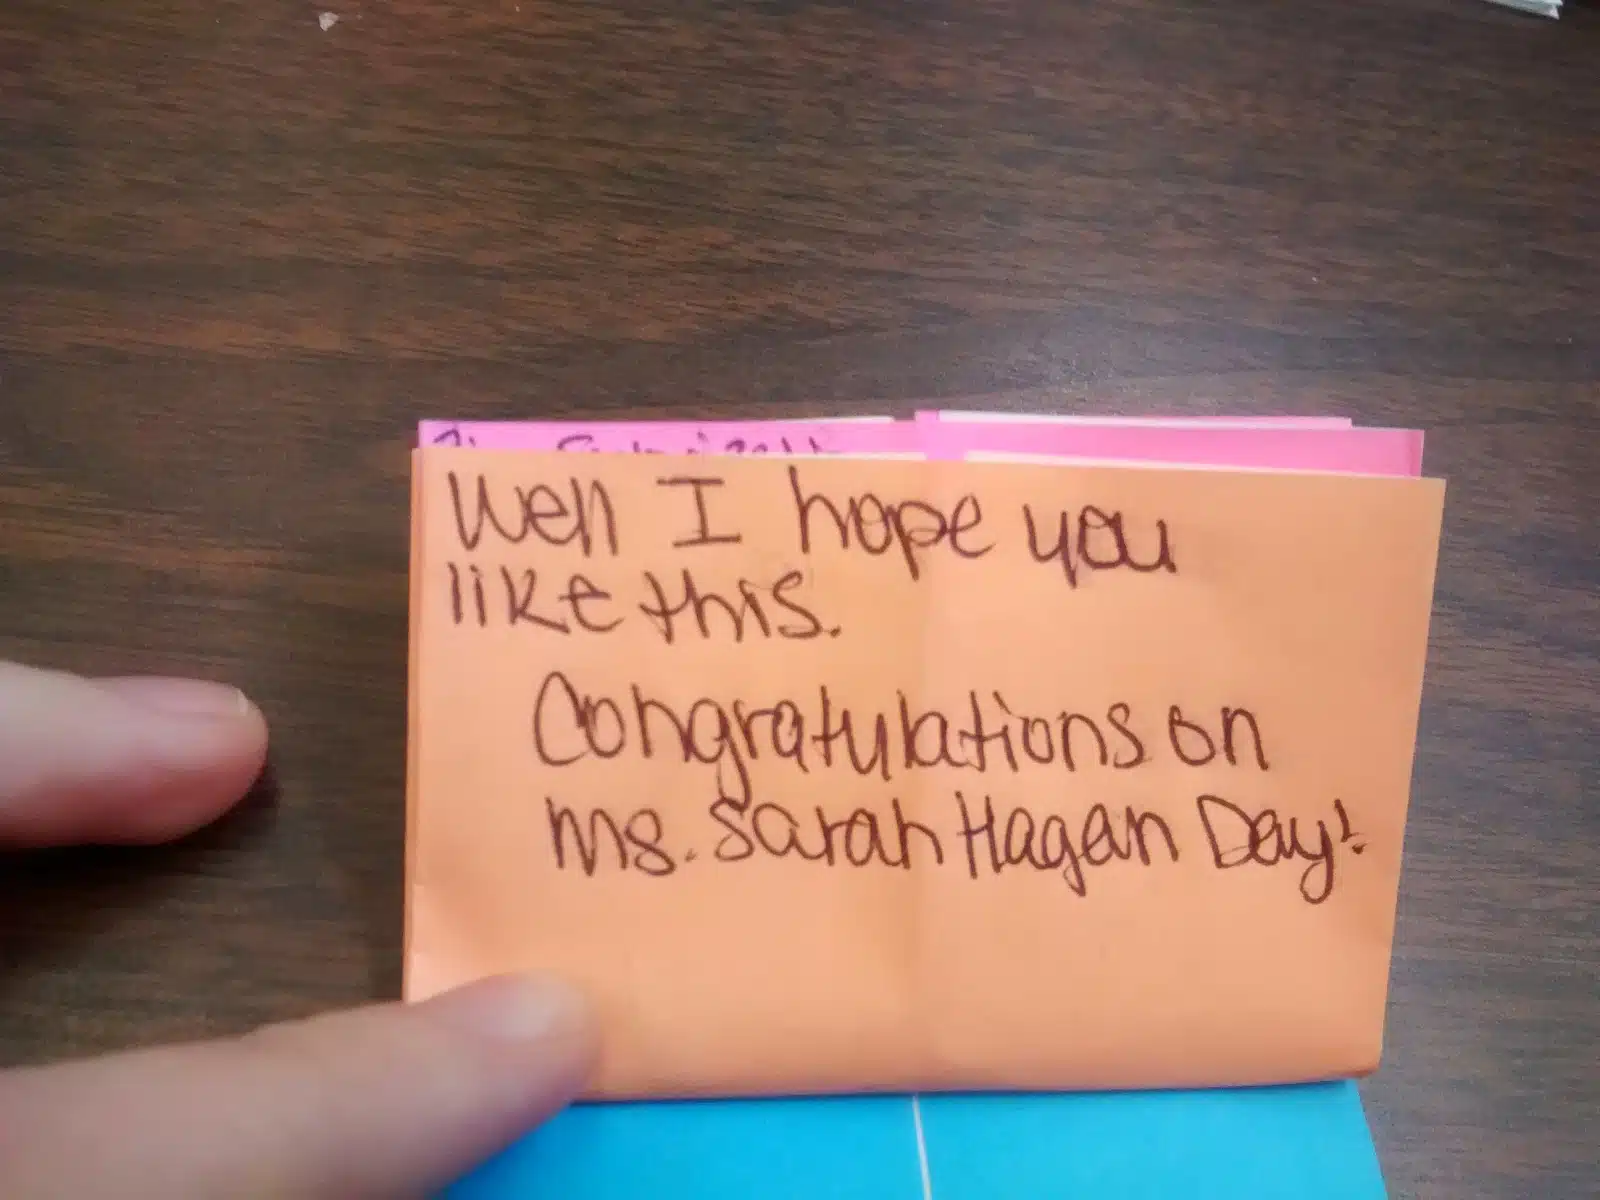 Well I hope you
like this.
Congratulations on
Ms. Sarah Hagan Day!